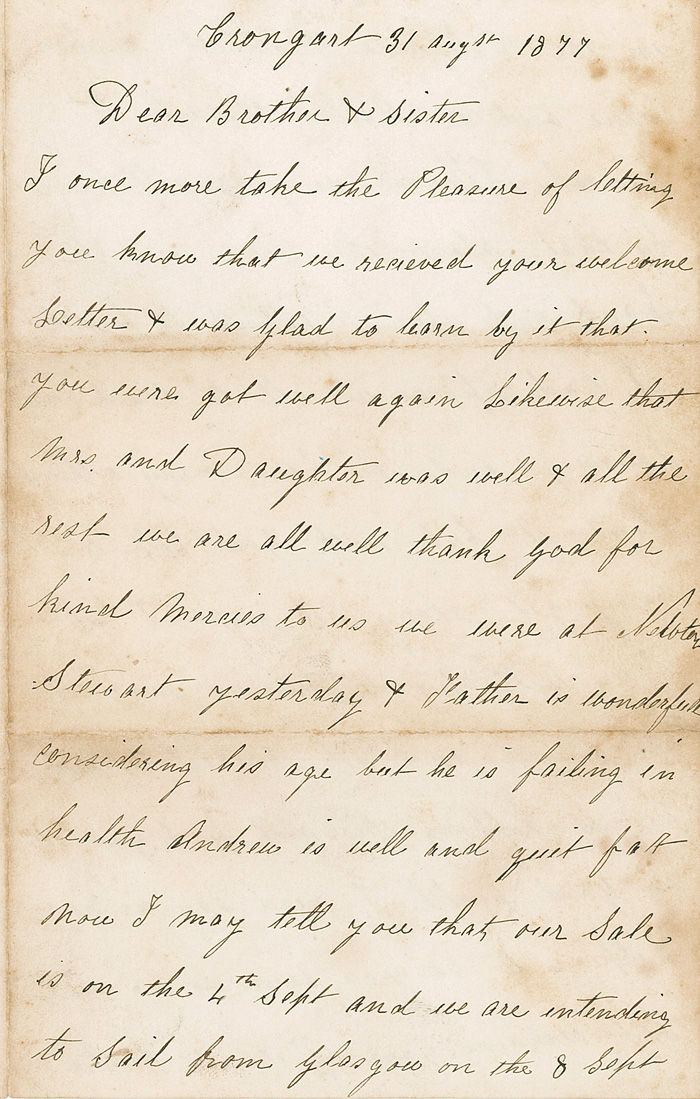 Crongart 31 augst 1877
Dear Brother & Sister
I once more take the Pleasure of letting
you know that we recieved your welcome
Letter & was Glad to learn by it that
you were got well again Likewise that
Mrs. and Daughter was well & all the
rest we are all well thank God for
kind Mercies to us we were at Newton
Stewart yesterday & Father is wonderfull
considering his age but he is failing in
health Andrew is well and quit fatt
Now I may tell you that our Sale
is on the 4th Sept and we are intending
to Sail from Glasgow on the 8 Sept